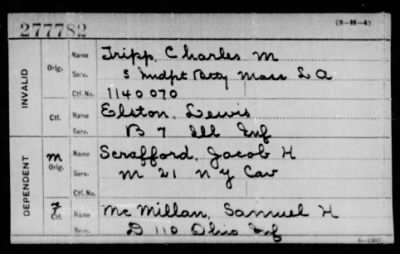 277782 (3-H-4)
INVALID
Orig. Name Tripp, Charles M
Serv. 3 Indpt Btty Mass L A
Ctf. No. 1140070
Ctf. Name Elston, Lewis
Serv. B 7 Ill Inf
DEPENDENT
m Orig. Name Scrafford, Jacob H
Serv. M 21 N Y Cav
Ctf. No.
7 Ctf. Name Mc Millan, Samuel H
Serv. D 110 Ohio Inf